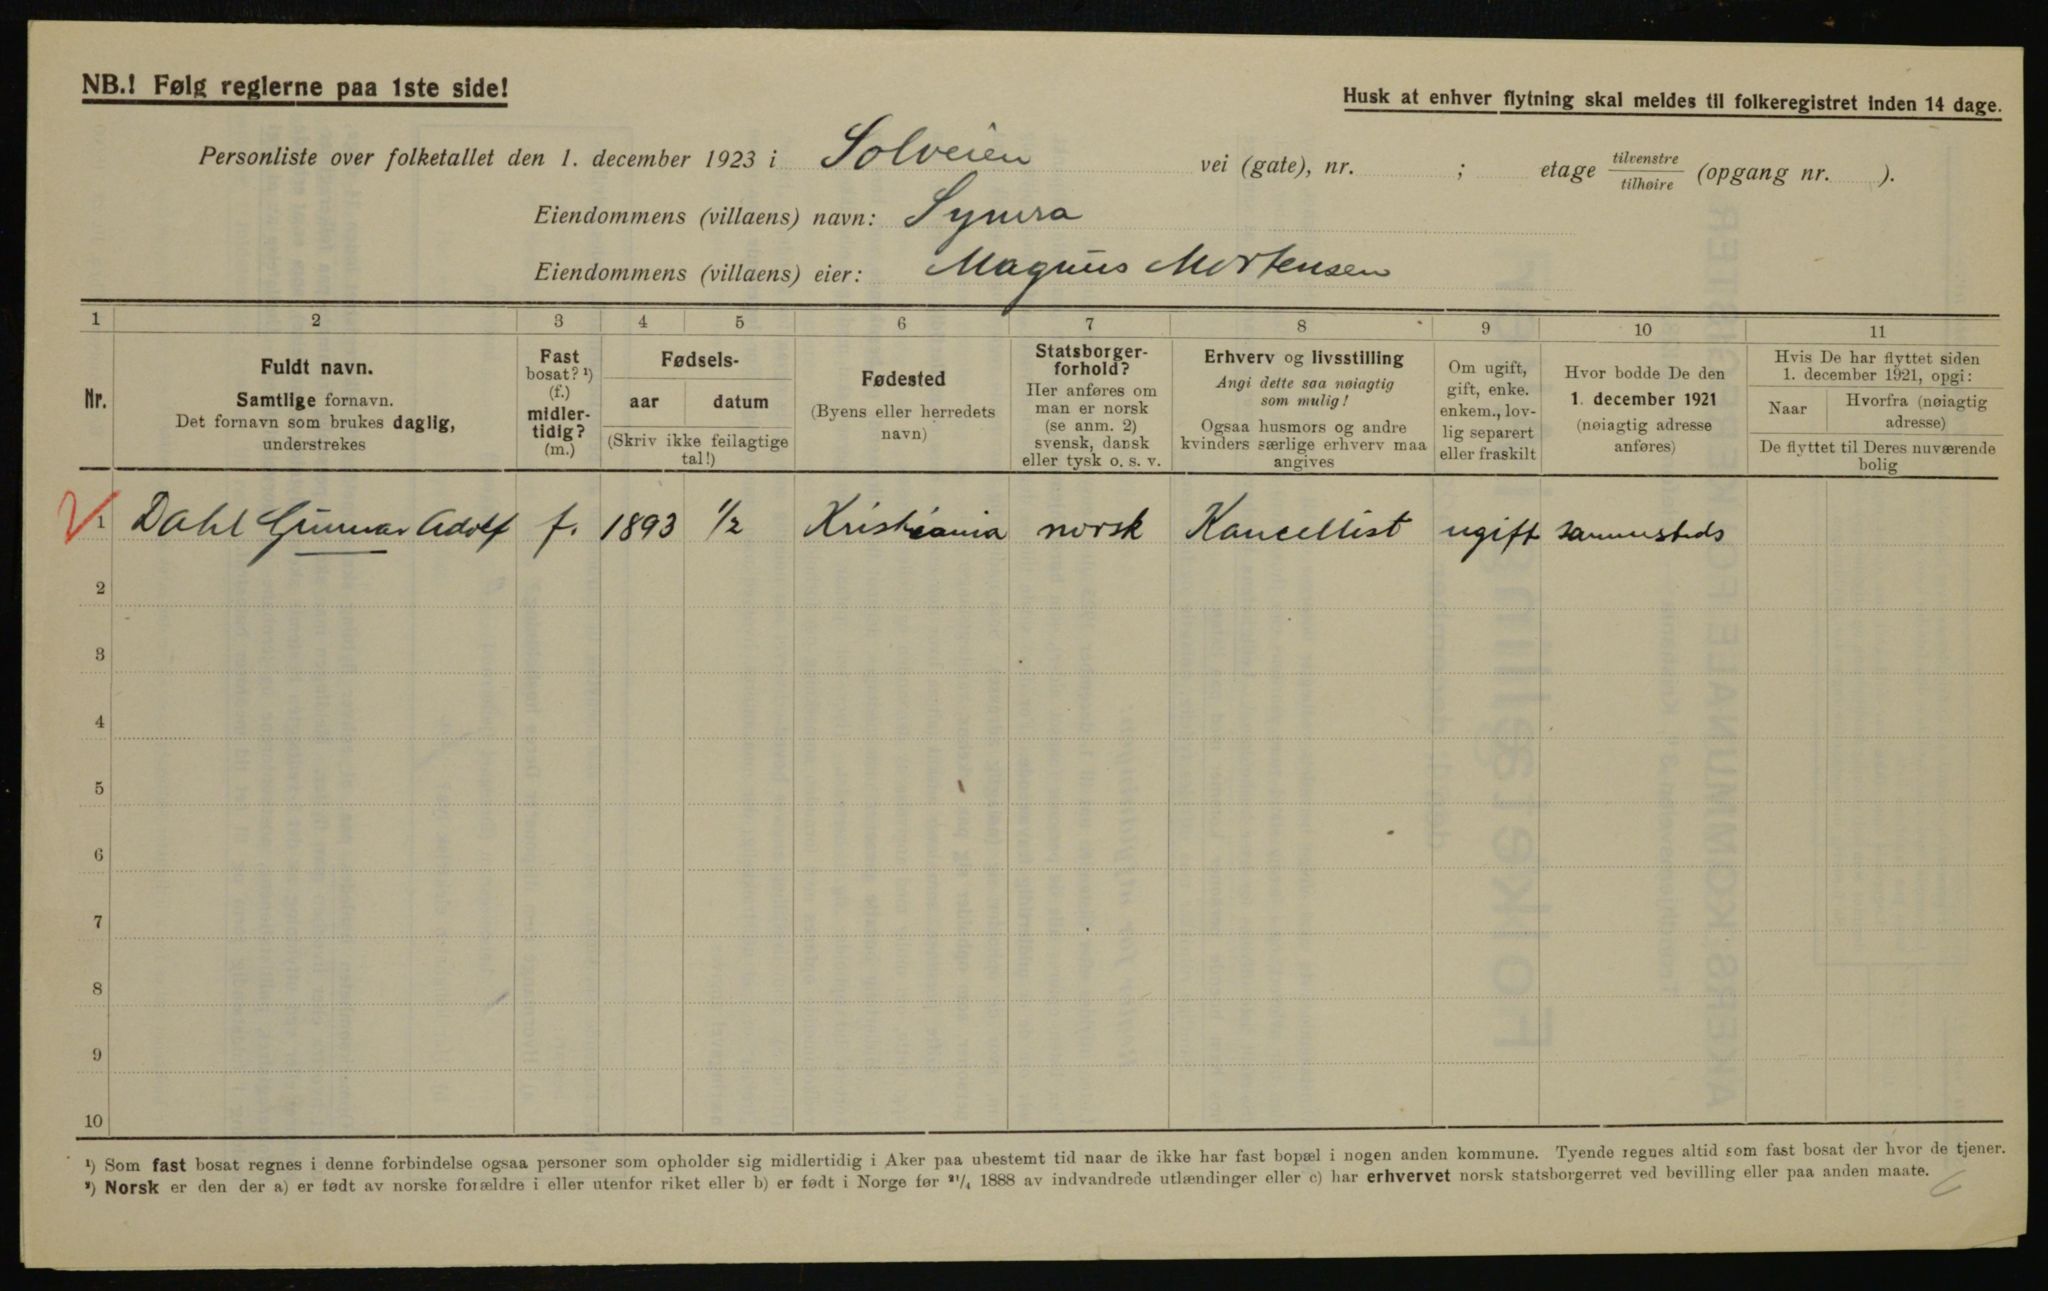 NB.! Følg reglerne paa 1ste side!
Husk at enhver flytning skal meldes til folkeregistret inden 14 dage.
Personliste over folketallet den 1. december 1923 i Solveien vei (gate), nr. ; etage tilvenstre/tilhøire (opgang nr. ).
Eiendommens (villaens) navn: Symra
Eiendommens (villaens) eier: Magnus Mortensen
1 2 3 4 5 6 7 8 9 10 11
Nr.
Fuldt navn.
Samtlige fornavn.
Det fornavn som brukes daglig,
understrekes
Fast
bosat? ¹)
(f.)
midler-
tidig?
(m.)
Fødsels-
aar datum
(Skriv ikke feilagtige
tal!)
Fødested
(Byens eller herredets
navn)
Statsborger-
forhold?
Her anføres om
man er norsk
(se anm. 2)
svensk, dansk
eller tysk o. s. v.
Erhverv og livsstilling
Angi dette saa nøiagtig
som mulig!
Ogsaa husmors og andre
kvinders særlige erhverv maa
angives
Om ugift,
gift, enke.
enkem., lov-
lig separert
eller fraskilt
Hvor bodde De den
1. december 1921
(nøiagtig adresse
anføres)
Hvis De har flyttet siden
1. december 1921, opgi:
Naar
Hvorfra (nøiagtig
adresse)
De flyttet til Deres nuværende
bolig
1 Dahl Gunnar Adolf f. 1893 1/2 Kristiania norsk Kancellist ugift sammesteds
2
3
4
5
6
7
8
9
10
¹) Som fast bosat regnes i denne forbindelse ogsaa personer som opholder sig midlertidig i Aker paa ubestemt tid naar de ikke har fast bopæl i nogen anden kommune. Tyende regnes altid som fast bosat der hvor de tjener.
²) Norsk er den der a) er født av norske forældre i eller utenfor riket eller b) er født i Norge før ²¹/₄ 1888 av indvandrede utlændinger eller c) har erhvervet norsk statsborgerret ved bevilling eller paa anden maate.